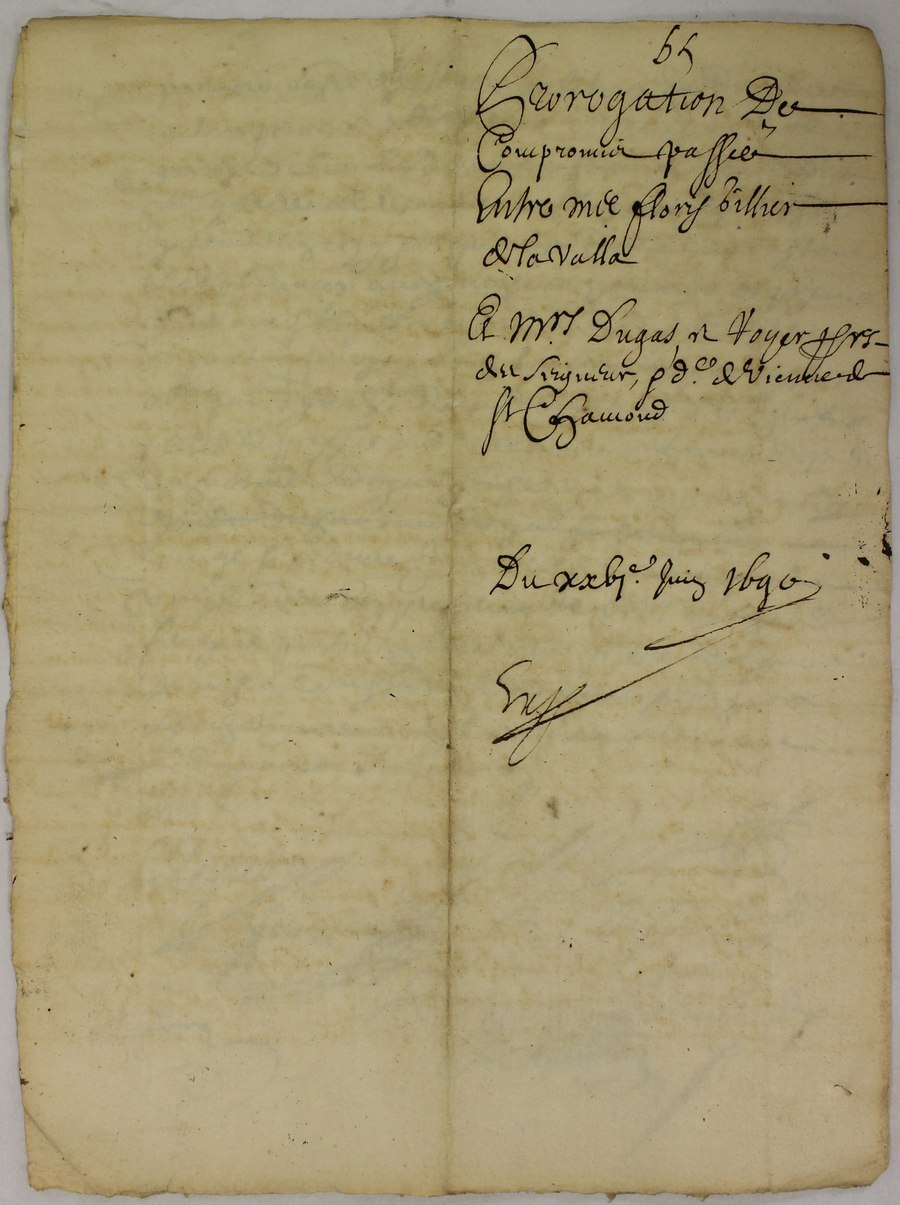 Prorogation De
Compromis passée
Entre mre florys billier
de la Valla
Et Mrs Dugas, et Voyer
du Seigneur, de Vienne de
st Chamond
Du xxbje Juin 1690